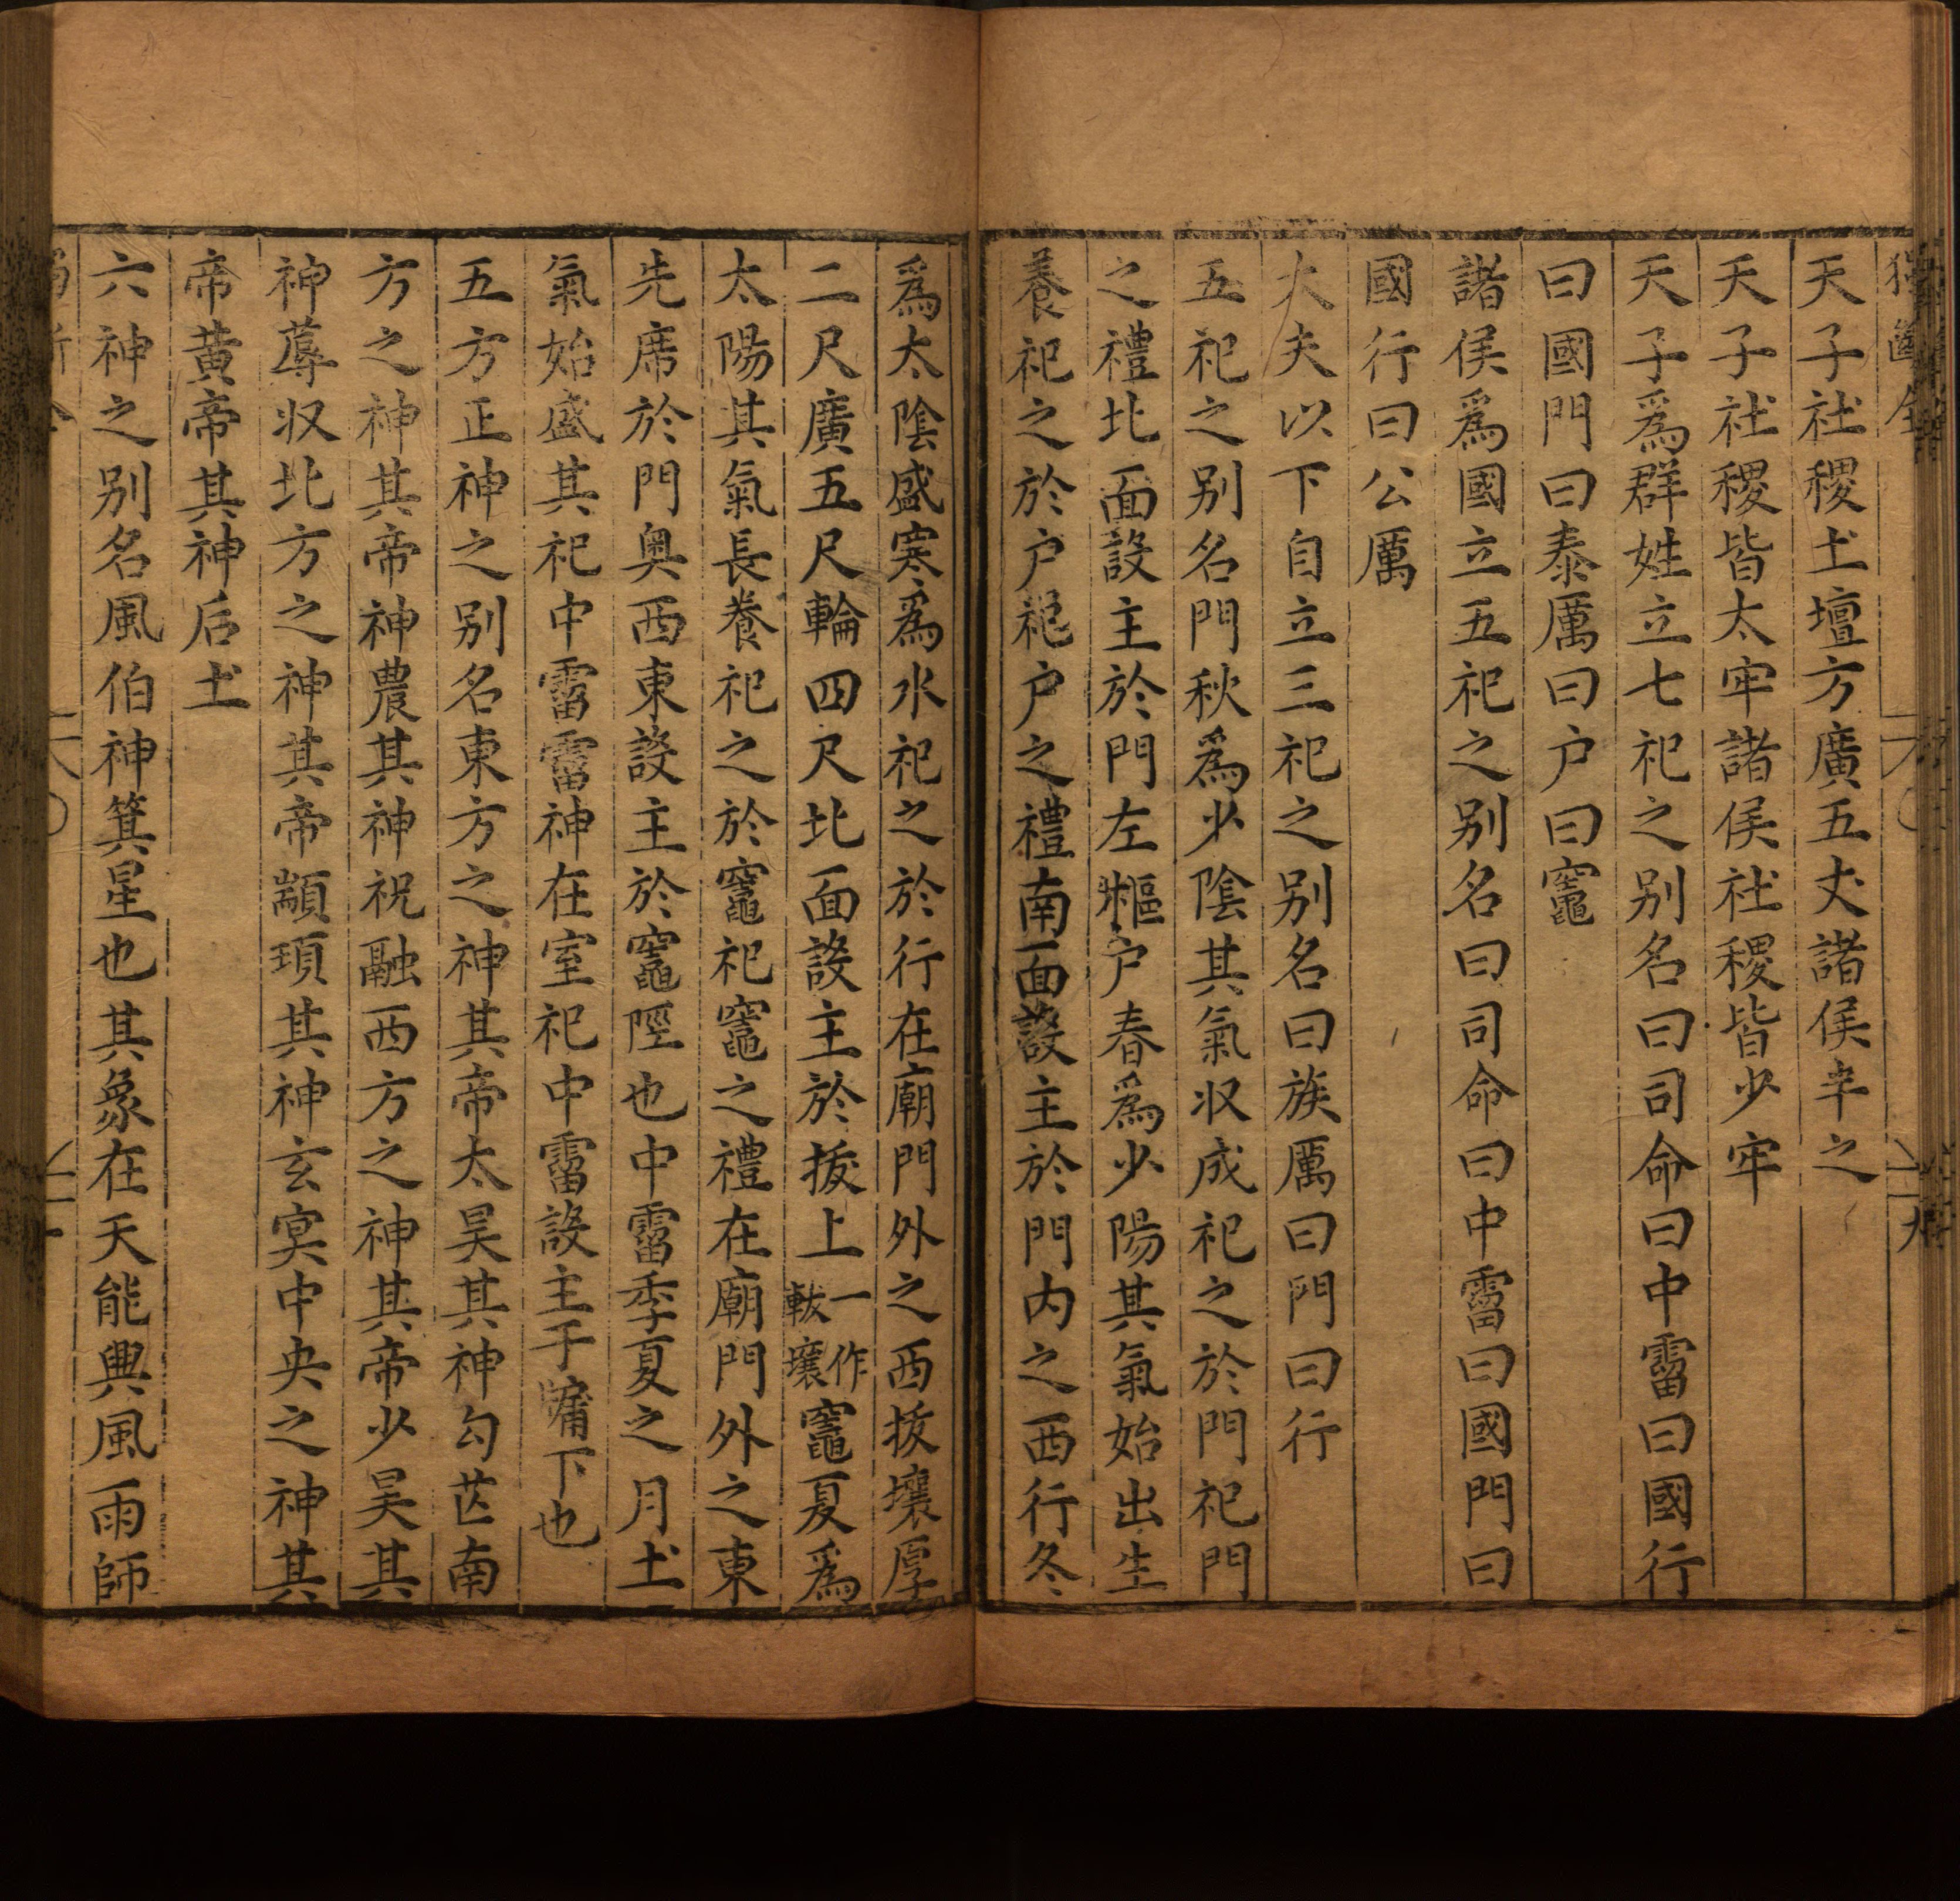 天子社稷土壇方廣五丈諸侯半之
天子社稷皆太牢諸侯社稷皆少牢
天子爲群姓立七祀之别名曰司命曰中霤曰國行
曰國門曰泰厲曰户曰竈
諸侯爲國立五祀之别名曰司命曰中霤曰國門曰
國行曰公厲
大夫以下自立三祀之别名曰族厲曰門曰行
五祀之别名門秋爲少陰其氣収成祀之於門祀門
之禮北面設主於門左樞户春爲少陽其氣始出生
養祀之於户祀户之禮南面設主於門内之西行冬
爲太陰盛寒爲水祀之於行在廟門外之西拔壤厚
二尺廣五尺輪四尺北面設主於拔上一作軷壤竈夏爲
太陽其氣長養祀之於竈祀竈之禮在廟門外之東
先席於門奥西東設主於竈陘也中霤季夏之月土
氣始盛其祀中霤霤神在室祀中霤設主于牖下也
五方正神之别名東方之神其帝太昊其神勾芒南
方之神其帝神農其神祝融西方之神其帝少昊其
神蓐収北方之神其帝顓頊其神玄冥中央之神其
帝黄帝其神后土
六神之别名風伯神箕星也其象在天能興風雨師